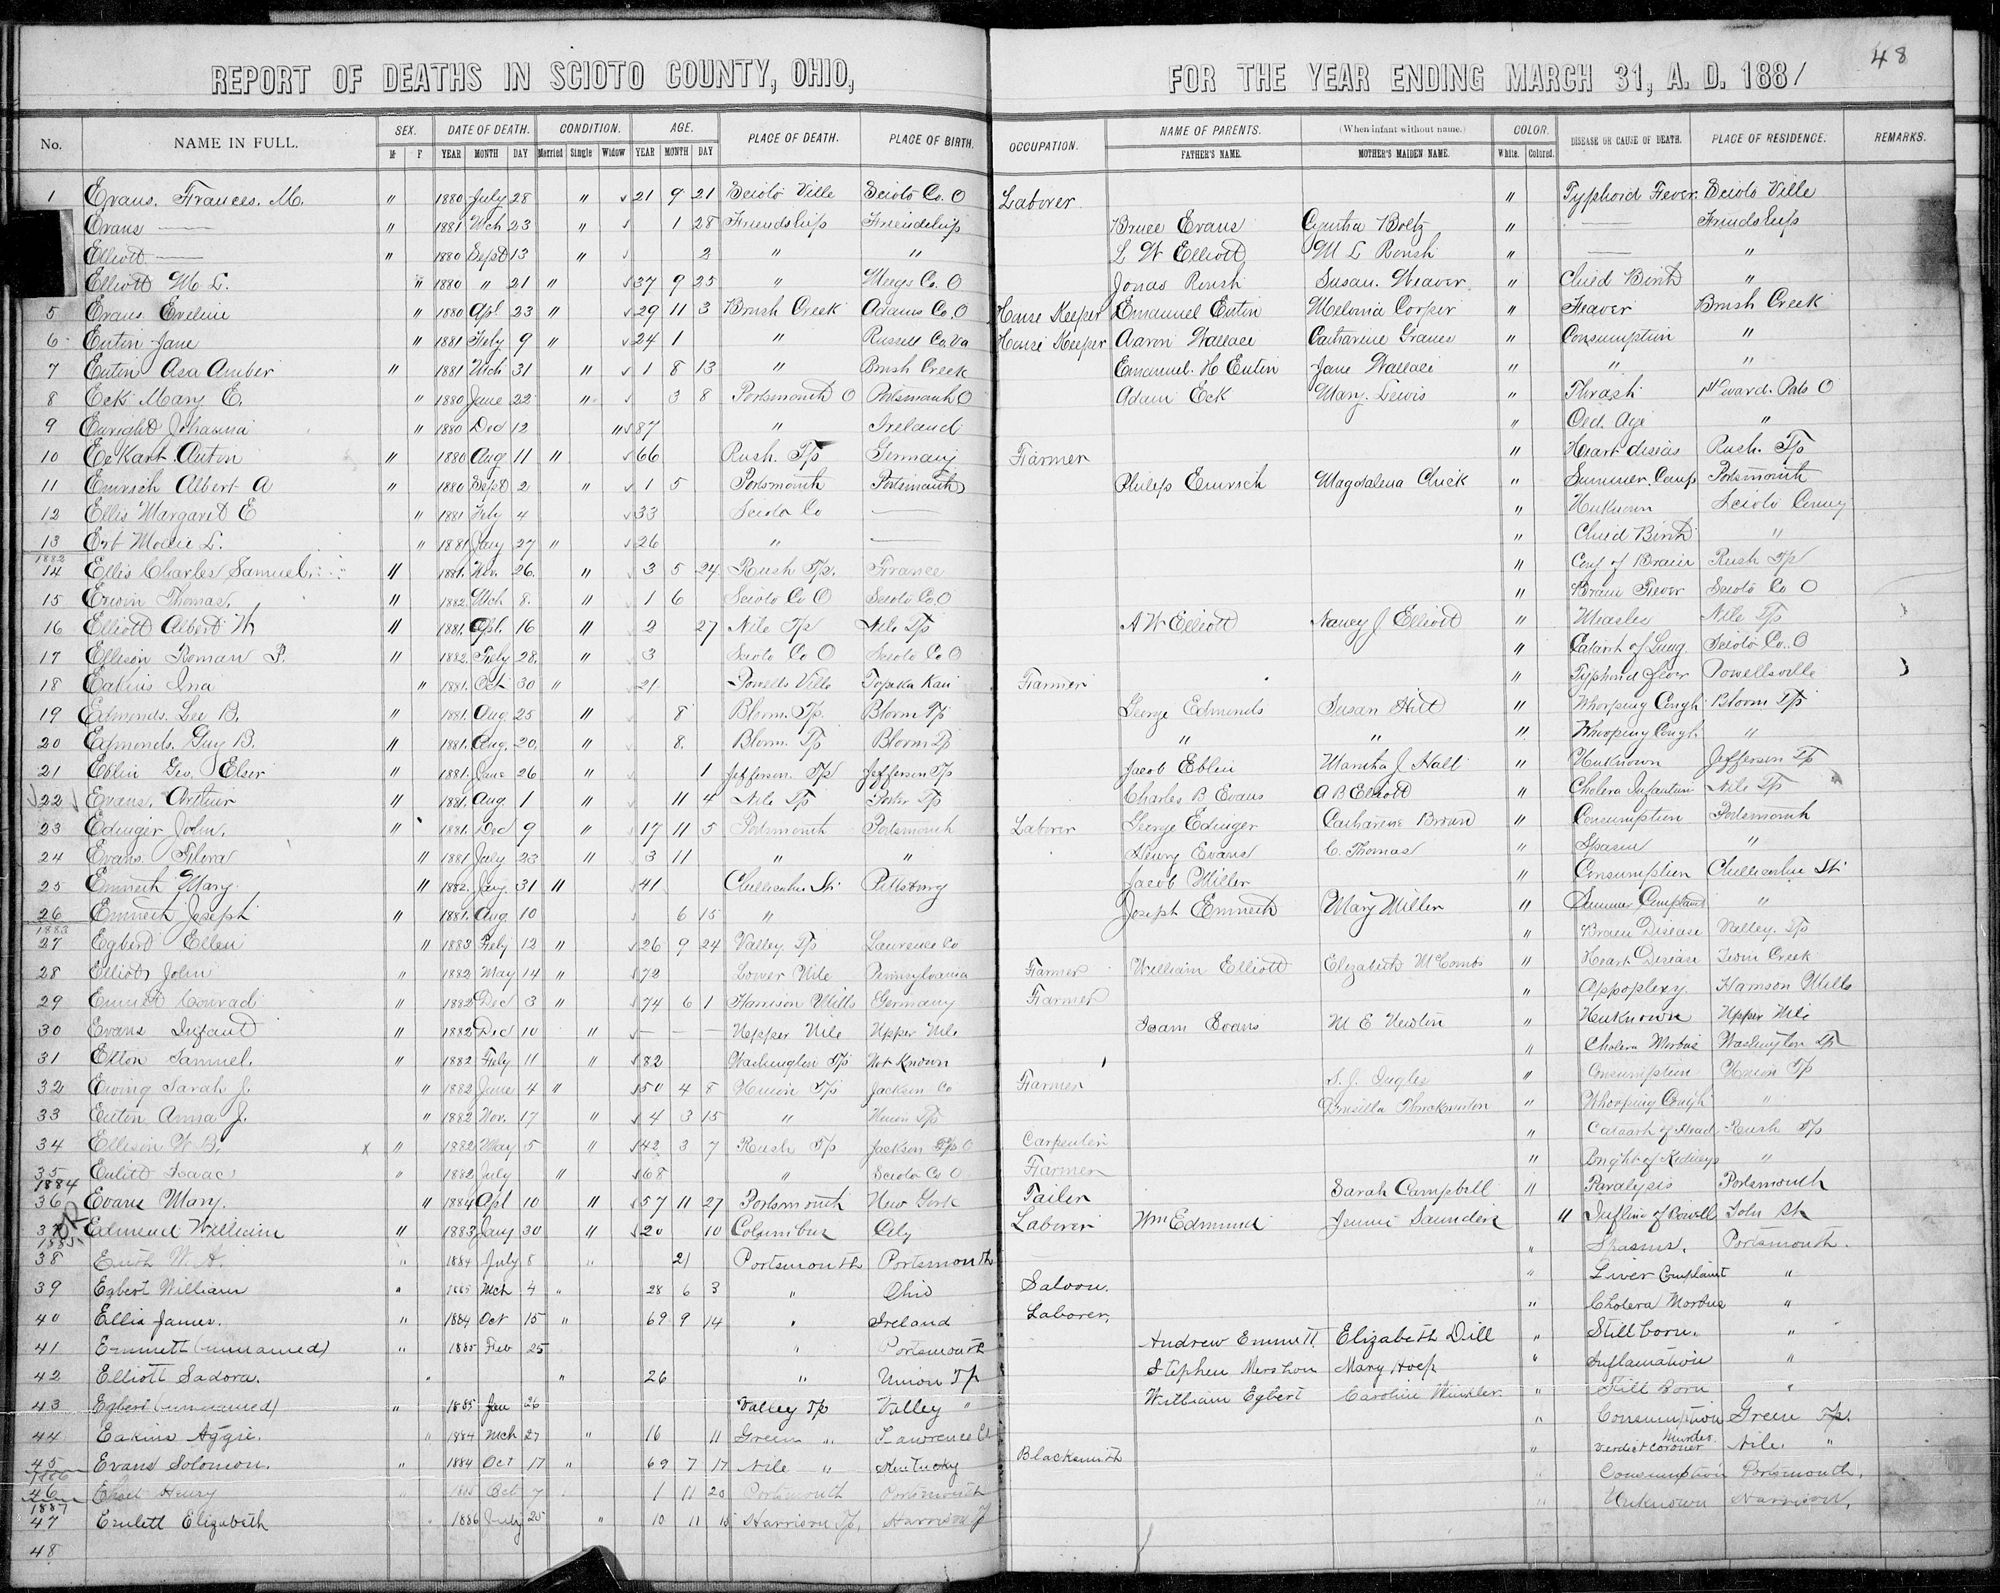 48
REPORT OF DEATHS IN SCIOTO COUNTY, OHIO, FOR THE YEAR ENDING MARCH 31, A. D. 1881
No. NAME IN FULL. SEX. DATE OF DEATH. CONDITION. AGE. PLACE OF DEATH. PLACE OF BIRTH. OCCUPATION. NAME OF PARENTS. (When infant without name.) COLOR. DISEASE OR CAUSE OF DEATH. PLACE OF RESIDENCE. REMARKS.
M F YEAR MONTH DAY Married Single Widow YEAR MONTH DAY FATHER'S NAME. MOTHER'S MAIDEN NAME. White. Colored.
1 Evans. Frances. M. " 1880 July 28 " 21 9 21 Scioto Ville Scioto Co. O Laborer " Typhord Fever Scioto Ville
Evans — " 1881 Mch 23 " 1 28 Friendship Friendship Bruce Evans Cyntha Boltz " — Friendship
Elliott — " 1880 Sept 13 " 2 " " L W Elliott M L Roush " — "
Elliott M L. " 1880 " 21 " 37 9 25 " Meigs Co. O Jonas Roush Susan. Weaver " Child Birth "
5 Evans Eveline " 1880 Apl 23 " 29 11 3 Brush Creek Adams Co. O House Keeper Emanuel Eutin Melonia Corper " Feaver Brush Creek
6 Eutin Jane " 1881 Feby 9 " 24 1 " Russell Co. Va House Keeper Aaron Wallace Catharine Graves " Consumption "
7 Eutin Asa Amber " 1881 Mch 31 " 1 8 13 " Brush Creek Emanuel. H Eutin Jane Wallace " " "
8 Eck Mary E. " 1880 June 22 " 3 8 Portsmouth O Portsmouth O Adam Eck Mary. Lewis " Thrash 1st ward. Ports O
9 Enright Johanna " 1880 Dec 12 " 87 " Ireland " Old. Age "
10 Eckart Anton " 1880 Aug 11 " 66 Rush. Tp Germany Farmer " Heart diseas Rush. Tp
11 Emrich Albert A " 1880 Sept 2 " 1 5 Portsmouth Portsmouth Philip Emrich Magdalena Chick " Summer. Comp Portsmouth
12 Ellis Margaret E " 1881 Feby 4 33 Scioto Co — " Unknown Scioto County
13 Erb Mollie L. " 1881 Jany 27 " 26 " — " Child Birth "
1882
14 Ellis Charles Samuel. " 1881. Nov. 26. " 3 5 24 Rush Tp. France " Conj of Brain Rush Tp
15 Erwin Thomas. " 1882 Mch 8. " 1 6 Scioto Co O Scioto Co. O " Brain Fever Scioto Co O
16 Elliott Albert W. " 1881. Apl. 16 " 2 27 Nile Tp Nile Tp A W Elliott Nancy J Elliott " Measles Nile Tp
17 Ellison Roman P. " 1882. Feby 28. " 3 Scioto Co O Scioto Co O " Catarrh of Lung. Scioto Co. O
18 Eakins Ina " 1881. Oct 30 " 21. Powells Ville Topeka Kan Farmer " Typhoid fever Powellsville
19 Edmonds. Lee B. " 1881. Aug 25 " 8 Bloom. Tp. Bloom Tp George Edmonds Susan Hitt " Whooping Cough Bloom Tp
20 Edmonds. Guy B. " 1881. Aug. 20. " 8. Bloom. Tp Bloom Tp " " " Whooping Cough. "
21 Eblin Geo. Elser " 1881. June 26 " 1 Jefferson. Tp Jefferson Tp Jacob Eblin Martha J Hall " Unknown Jefferson Tp
22 Evans. Arthur " 1881. Aug 1 " 11 4 Nile Tp Porter Tp Charles B Evans A B Elliott " Cholera Infantum Nile Tp
23 Edinger John. " 1881. Dec 9 " 17 11 5 Portsmouth Portsmouth Laborer George Edinger Catharine Braun " Consumption Portsmouth
24 Evans. Flora " 1881 July 23 " 3 11 " " Henry Evans C. Thomas " Spasm "
25 Emnech Mary. " 1882. Jany. 31 " 41 Chillicothe St. Pittsburg Jacob Miller " Consumption Chillicothe St
26 Emnech Joseph " 1881. Aug 10 6 15 " Joseph Emnech Mary Miller " Summer Complaint "
1883
27 Egbert Ellen " 1883 Feby 12 " 26 9 24 Valley Tp Lawrence Co " Brain Disease Valley. Tp
28 Elliott John " 1882 May 14 " 72 Lower Nile Pennsylvania Farmer William Elliott Elizabeth McCombs " Heart Disease Twin Creek
29 Emmet Conrad " 1882 Dec 3 " 74 6 1 Harrison Mills Germany Farmer " Appoplexy. Harrison Mills
30 Evans Infant " 1882 Dec 10 " — — — Upper Nile Upper Nile Isam Evans M E Newton " Unknown Upper Nile
31 Elton Samuel. " 1882 Feby 11 " 82 Washington Tp Not Known " Cholera Morbus Washington Tp
32 Ewing Sarah J. " 1882 June 4 " 50 4 8 Union Tp Jackson Co Farmer S. J. Ingles " Consumption Union Tp
33 Eutin Anna J. " 1882 Nov. 17 " 4 3 15 " Union Tp Drusilla Thockmorton " Whooping Cough "
34 Ellison W B. x " 1882 May 5 " 42 3 7 Rush Tp Jackson Tp O Carpenter " Catarrh of Head Rush Tp
35 Eulitt Isaac " 1882 July " 68 " Scioto Co O Farmer " Bright of Kidneys "
1884
36 Evans Mary. " 1884 Apl 10 " 57 11 27 Portsmouth New York Tailer Sarah Campbell " Paralysis Portsmouth
37 Edmend William " 1883 Jany 30 " 20 10 Columbus City Laborer Wm Edmund Jennie Saunders " Inflm of Bowell John St
1885.
38 W. A. " 1884 July 8 " 21 Portsmouth Portsmouth " Spasms. Portsmouth.
39 Egbert William " 1885 Mch 4 " 28 6 3 " Ohio Saloon. " Liver Complaint "
40 Ellis James. " 1884 Oct 15 " 69 9 14 " Ireland Laborer, " Cholera Morbus "
41 Emmett (unnamed) " 1885 Feb 25 " Portsmouth Andrew Emmett. Elizabeth Dill " Still born. "
42 Elliott Sadora. " " 26 " Union Tp Stephen Mershon Mary Hoep " Inflamation "
43 Egbert (unnamed) " 1885 Jan 26 Valley Tp Valley " William Egbert Caroline Winkler " Still Born "
44 Eakins Aggie. " 1884 Mch 27 " 16 11 Green " Lawrence Co " Consumption Green Tp.
45 Evans Solomon. " 1884 Oct 17 " 69 7 17 Nile " Kentucky Blacksmith " Verdict Coroner Murder. Nile. "
1886
46 Henry " 1885 Oct 7 1 11 20 Portsmouth Portsmouth " Consumption Portsmouth.
1887
47 Emlett Elizabeth " 1886 July 25 " 10 11 15 Harrison Tp. Harrison Tp " Unknown Harrison.
48